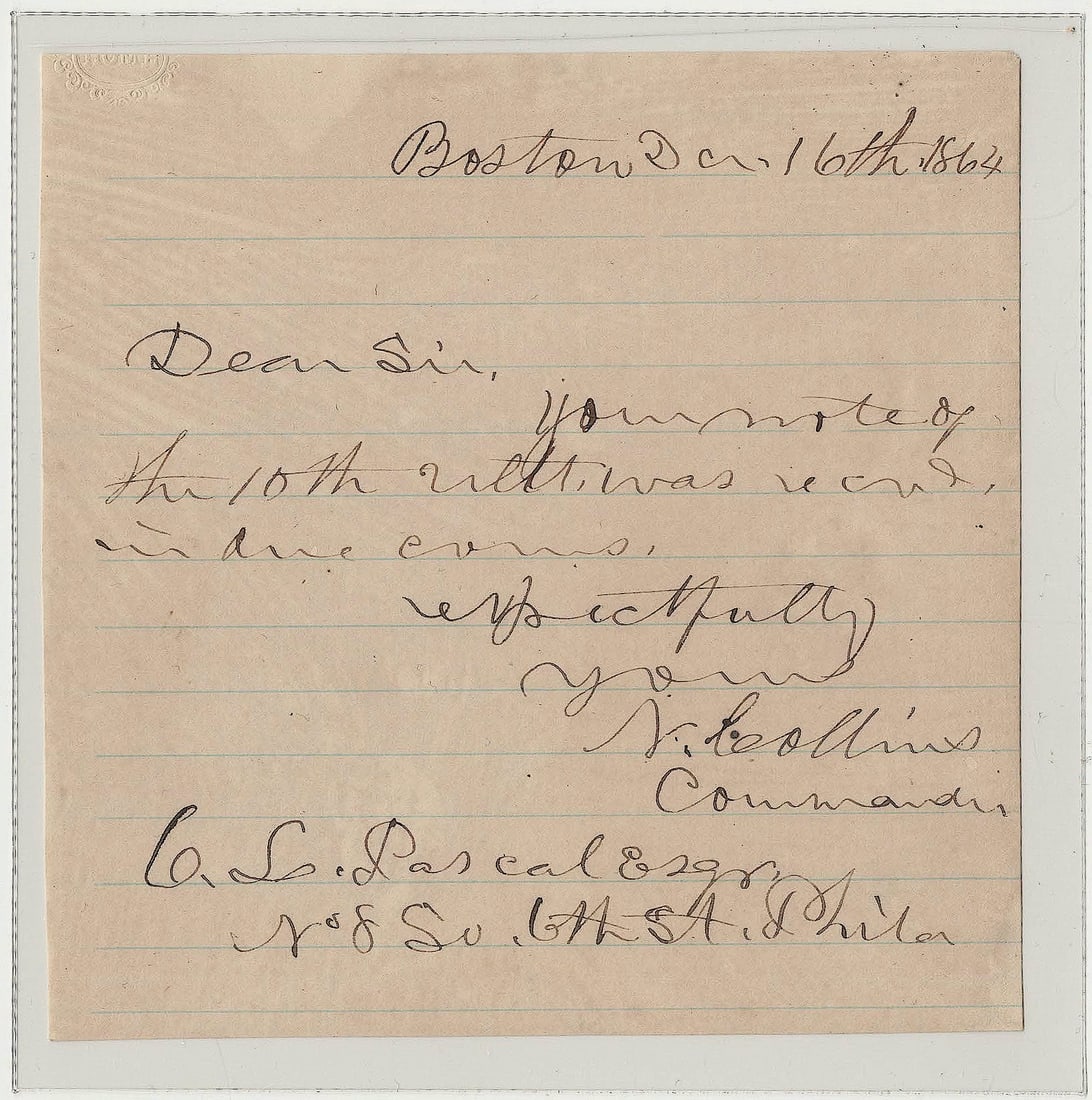 Boston Dec. 16th. 1864
Dear Sir,
Your note of
the 10th ult. was recvd.
in due cours.
respectfully
yours
N. Collins
Commander
C. L. Pascal Esqr.
No 8 So. 6th St. Phila